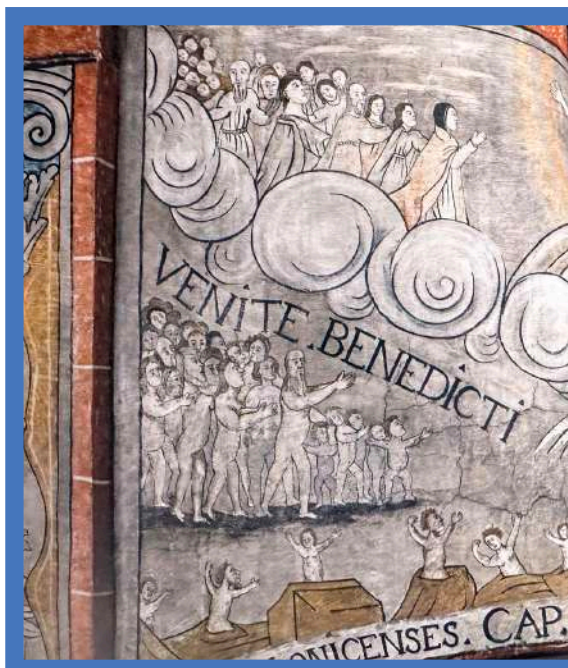 VENITE.BENEDICTI
ONICENSES. CAP.